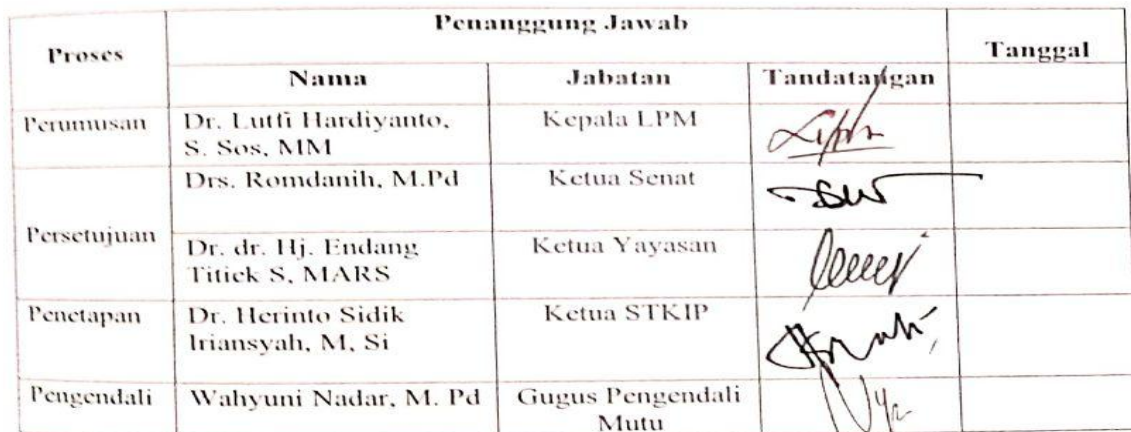 Proses
Penanggung Jawab
Tanggal
Nama
Jabatan
Tandatangan
Perumusan
Dr. Lutfi Hardiyanto,
S. Sos, MM
Kepala LPM
Persetujuan
Drs. Romdanih, M.Pd
Ketua Senat
Dr. dr. Hj. Endang
Titick S, MARS
Ketua Yayasan
Penetapan
Dr. Herinto Sidik
Iriansyah, M, Si
Ketua STKIP
Pengendali
Wahyuni Nadar, M. Pd
Gugus Pengendali
Mutu